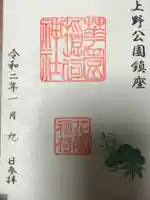 上野公園鎮座
花園稲荷神社
花園稲荷
令和二年一月九日参拝